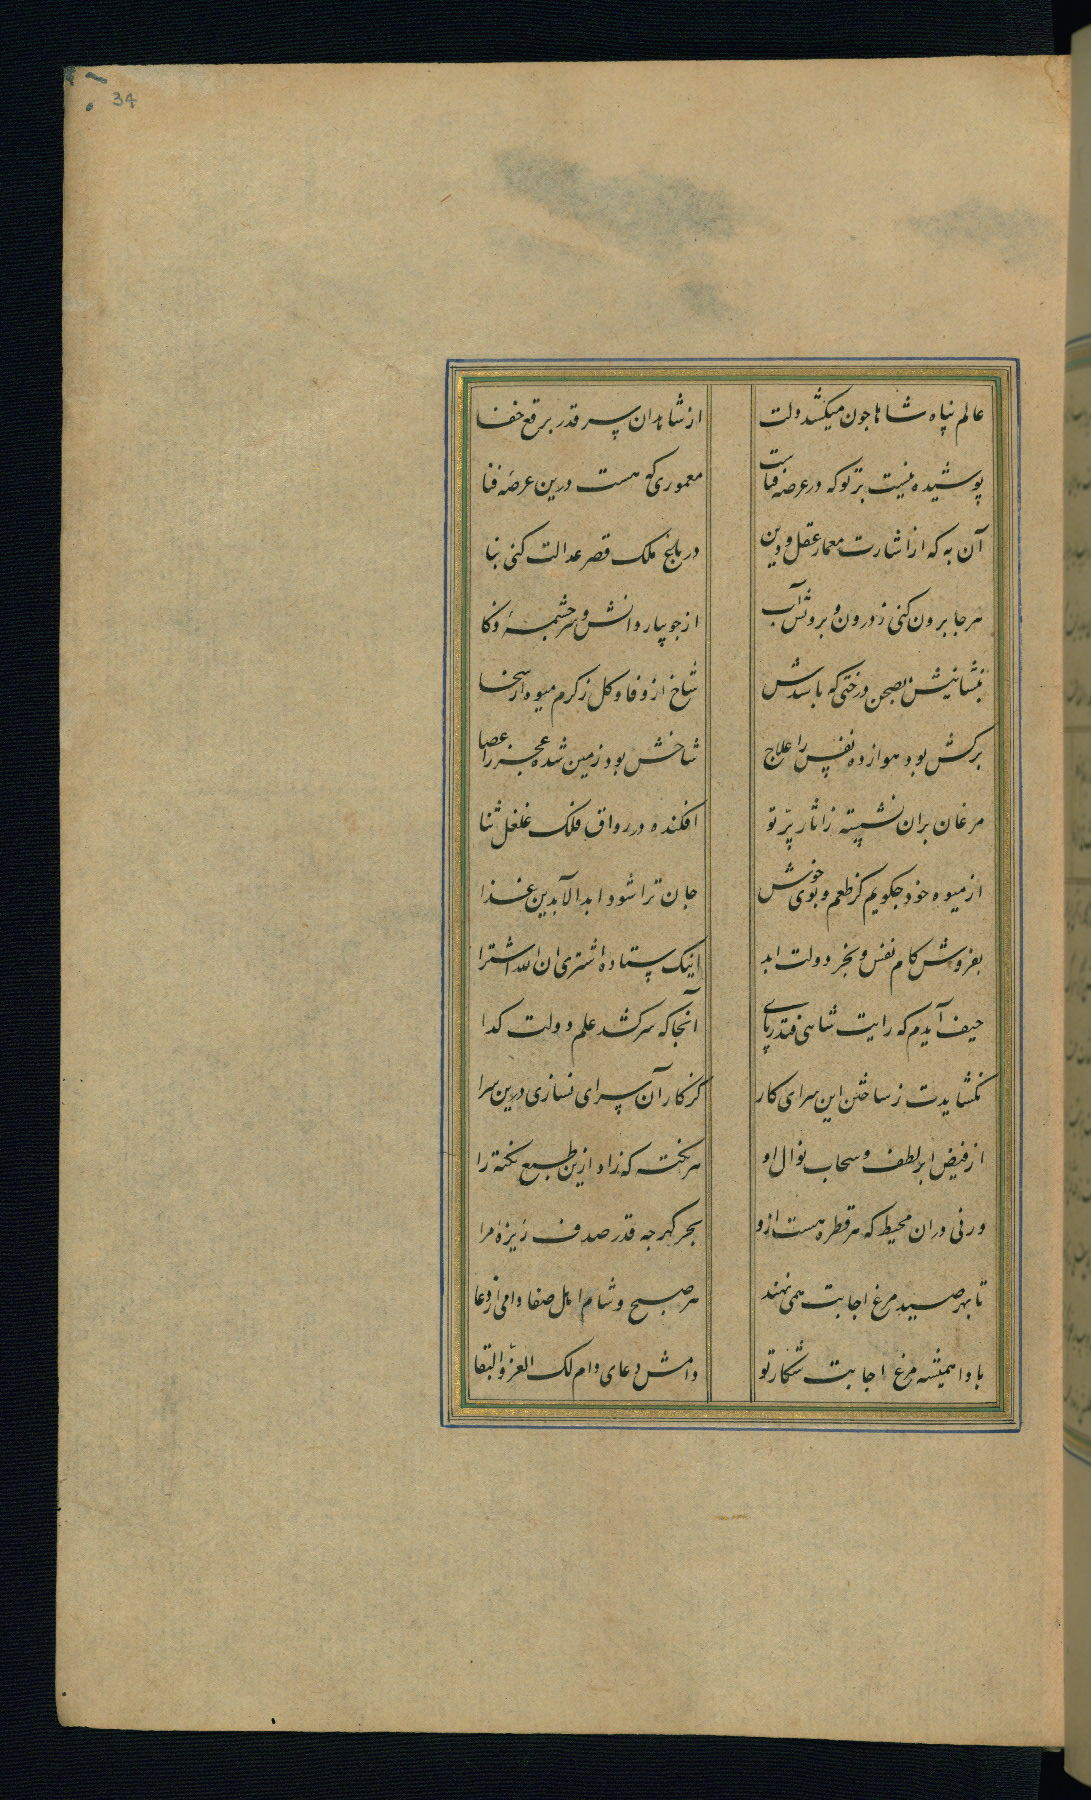 34
عالم پناه شاها چون میکشد دولت
از شاهدان سر قدر برقع خفا
پوشیده نیست بر تو که در عرصه فناست
معموری که هست درین عرصهٔ فنا
آن به که از اشارت معمار عقل و دین
در بلخ ملک قصر عدالت کنی بنا
هر جا برون کنی ز درون و برونش آب
از جویبار دانش و سرچشمهٔ ذکا
بنشانیش بصحن درختی که باشدش
شاخ از وفا و کل ز کرم میوه از سخا
برکش بود هوازده نفس را علاج
شاخش بود زمین شده عجز را عصا
مرغان بران نشسته ز اثار بر تو
افکنده در رواق فلک غلغل ثنا
از میوه خود چکویم کز طعم و بوی خوش
جان ترا شود ابد الآبدین غذا
بفروش کام نفس و بخر دولت ابد
اینک ستاده اشتری ان الله اشترا
حیف آیدم که رایت شاهی فتد ز پای
آنجا که سر کشد علم دولت کدا
نکشایدت ز ساختن این سرای کار
کز کار آن سرای نسازی درین سرا
از فیض ابر لطف و سحاب نوال او
هر نکته که زاد ازین طبع نکته را
ورنی دران محیط که هر قطره هست ازو
بحر کهر چه قدر صدف ریزهٔ مرا
تا بهر صید مرغ اجابت همی نهند
هر صبح و شام اهل صفا دامی از دعا
بادا همیشه مرغ اجابت شکار تو
دامش دعای دام لک العز و البقا